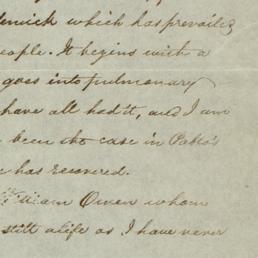 which has prevailed
people. It begins with a
goes into pulmonary
have all had it, and I am
been the case in Pablo's
has recovered.
William Owen whom
still alife as I have never